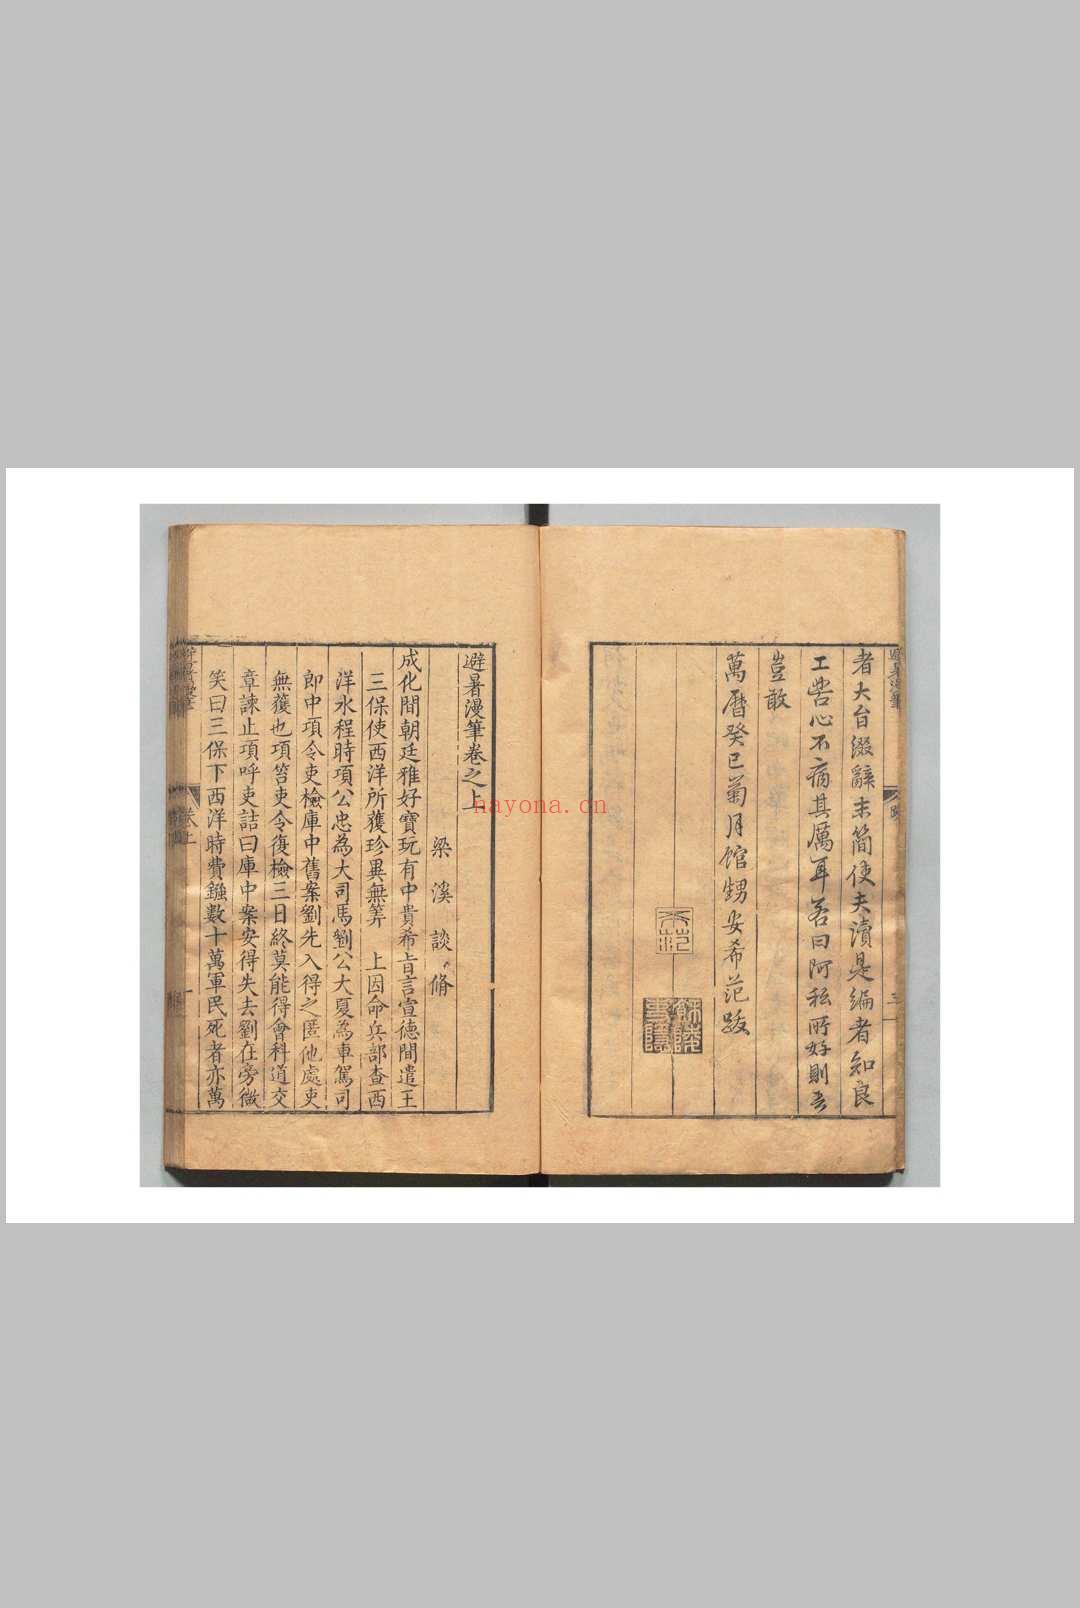 者大台綴辭末簡使夫讀是編者知良
工苦心不病其厲耳若曰阿私所好則吾
豈敢
萬曆癸巳菊月館甥安希范跋
避暑漫筆卷之上
梁溪談脩
成化間朝廷雅好寶玩有中貴希旨言宣德間遣王
三保使西洋所獲珍異無筭 上因命兵部查西
洋水程時項公忠為大司馬劉公大夏為車駕司
郎中項令吏檢庫中舊案劉先入得之匿他處吏
無獲也項笞吏令復檢三日終莫能得會科道交
章諫止項呼吏詰曰庫中案安得失去劉在旁微
笑曰三保下西洋時費錢數十萬軍民死者亦萬
卷上
nayona.cn